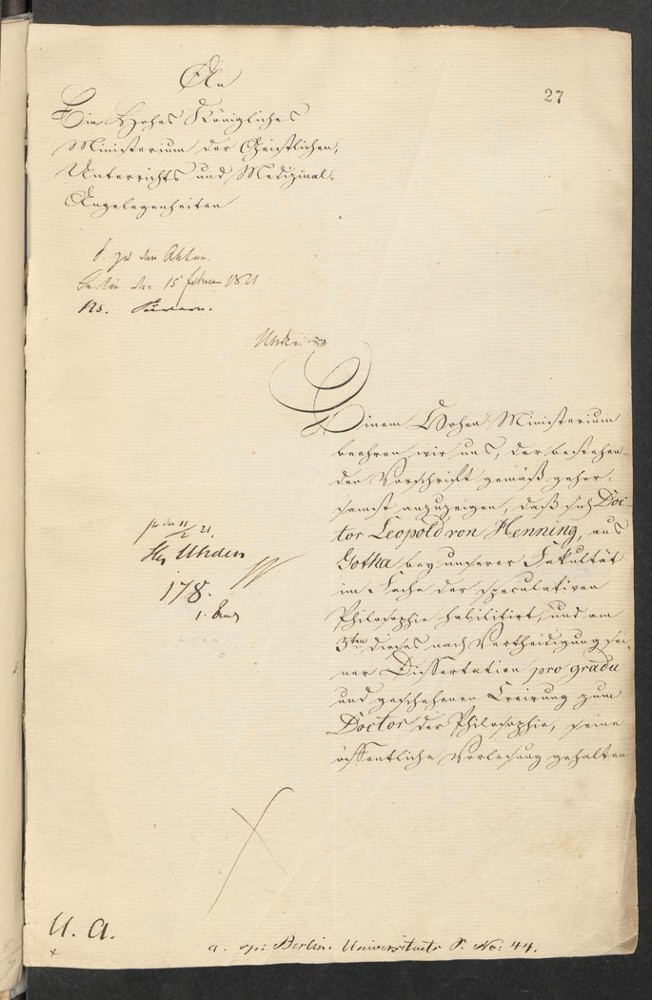 27
An
Ein Hohes Königliches
Ministerium der Geistlichen,
Unterrichts und Medizinal-
Angelegenheiten
z. zu den Akten.
Berlin den 15 Februar 1821
Uhden
Einem Hohen Ministerium
beehren wir uns, der bestehen-
den Vorschrift gemäß gehor-
samst anzuzeigen, daß sich Doc-
tor Leopold von Henning, aus
Gotha bey unserer Fakultät
im Fache der speculativen
Philosophie habilitirt, und am
3ten dieses nach Vertheidigung sei-
ner Dissertation pro gradu
und geschehenen Creirung zum
Doctor der Philosophie, seine
öffentliche Vorlesung gehalten
11/2 21.
Hr Uhden
178.
U. A.
a. Berlin. Universitaets No: 44.